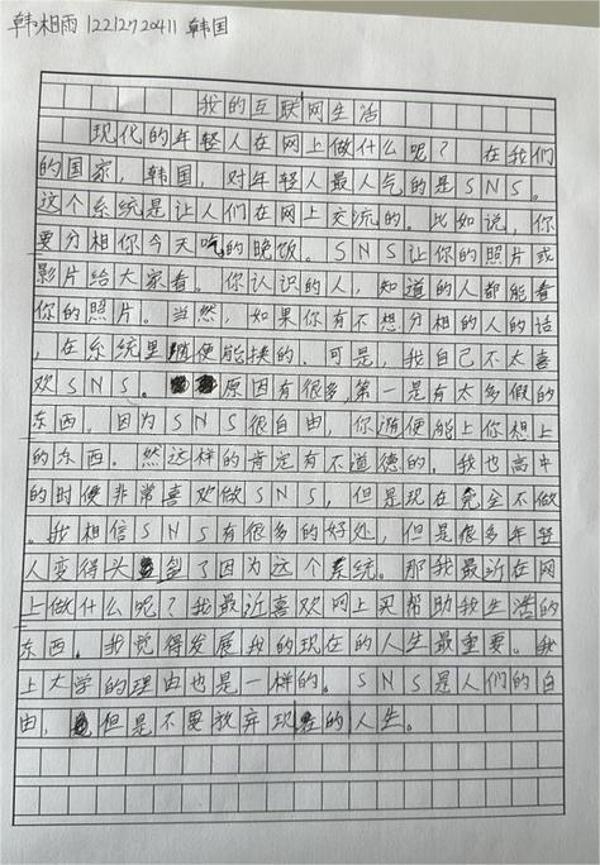 韩相雨 12212720411 韩国
我的互联网生活
现代的年轻人在网上做什么呢？ 在我们
的国家，韩国，对年轻人最人气的是SNS。
这个系统是让人们在网上交流的。比如说，你
要分相你今天吃的晚饭。SNS让你的照片或
影片给大家看。你认识的人，知道的人都能看
你的照片。当然，如果你有不想分相的人的话
，在系统里随便能换的。可是，我自己不太喜
欢SNS。原因有很多，第一是有太多假的
东西，因为SNS很自由，你随便能上你想上
的东西。然这样的肯定有不道德的。我也高中
的时候非常喜欢做SNS，但是现在完全不做
。我相信SNS有很多的好处，但是很多年轻
人变得头了因为这个系统。那我最近在网
上做什么呢？我最近喜欢网上买帮助我生活的
东西。我觉得发展我的现在的人生最重要。我
上大学的理由也是一样的。SNS是人们的自
由，但是不要放弃现在的人生。